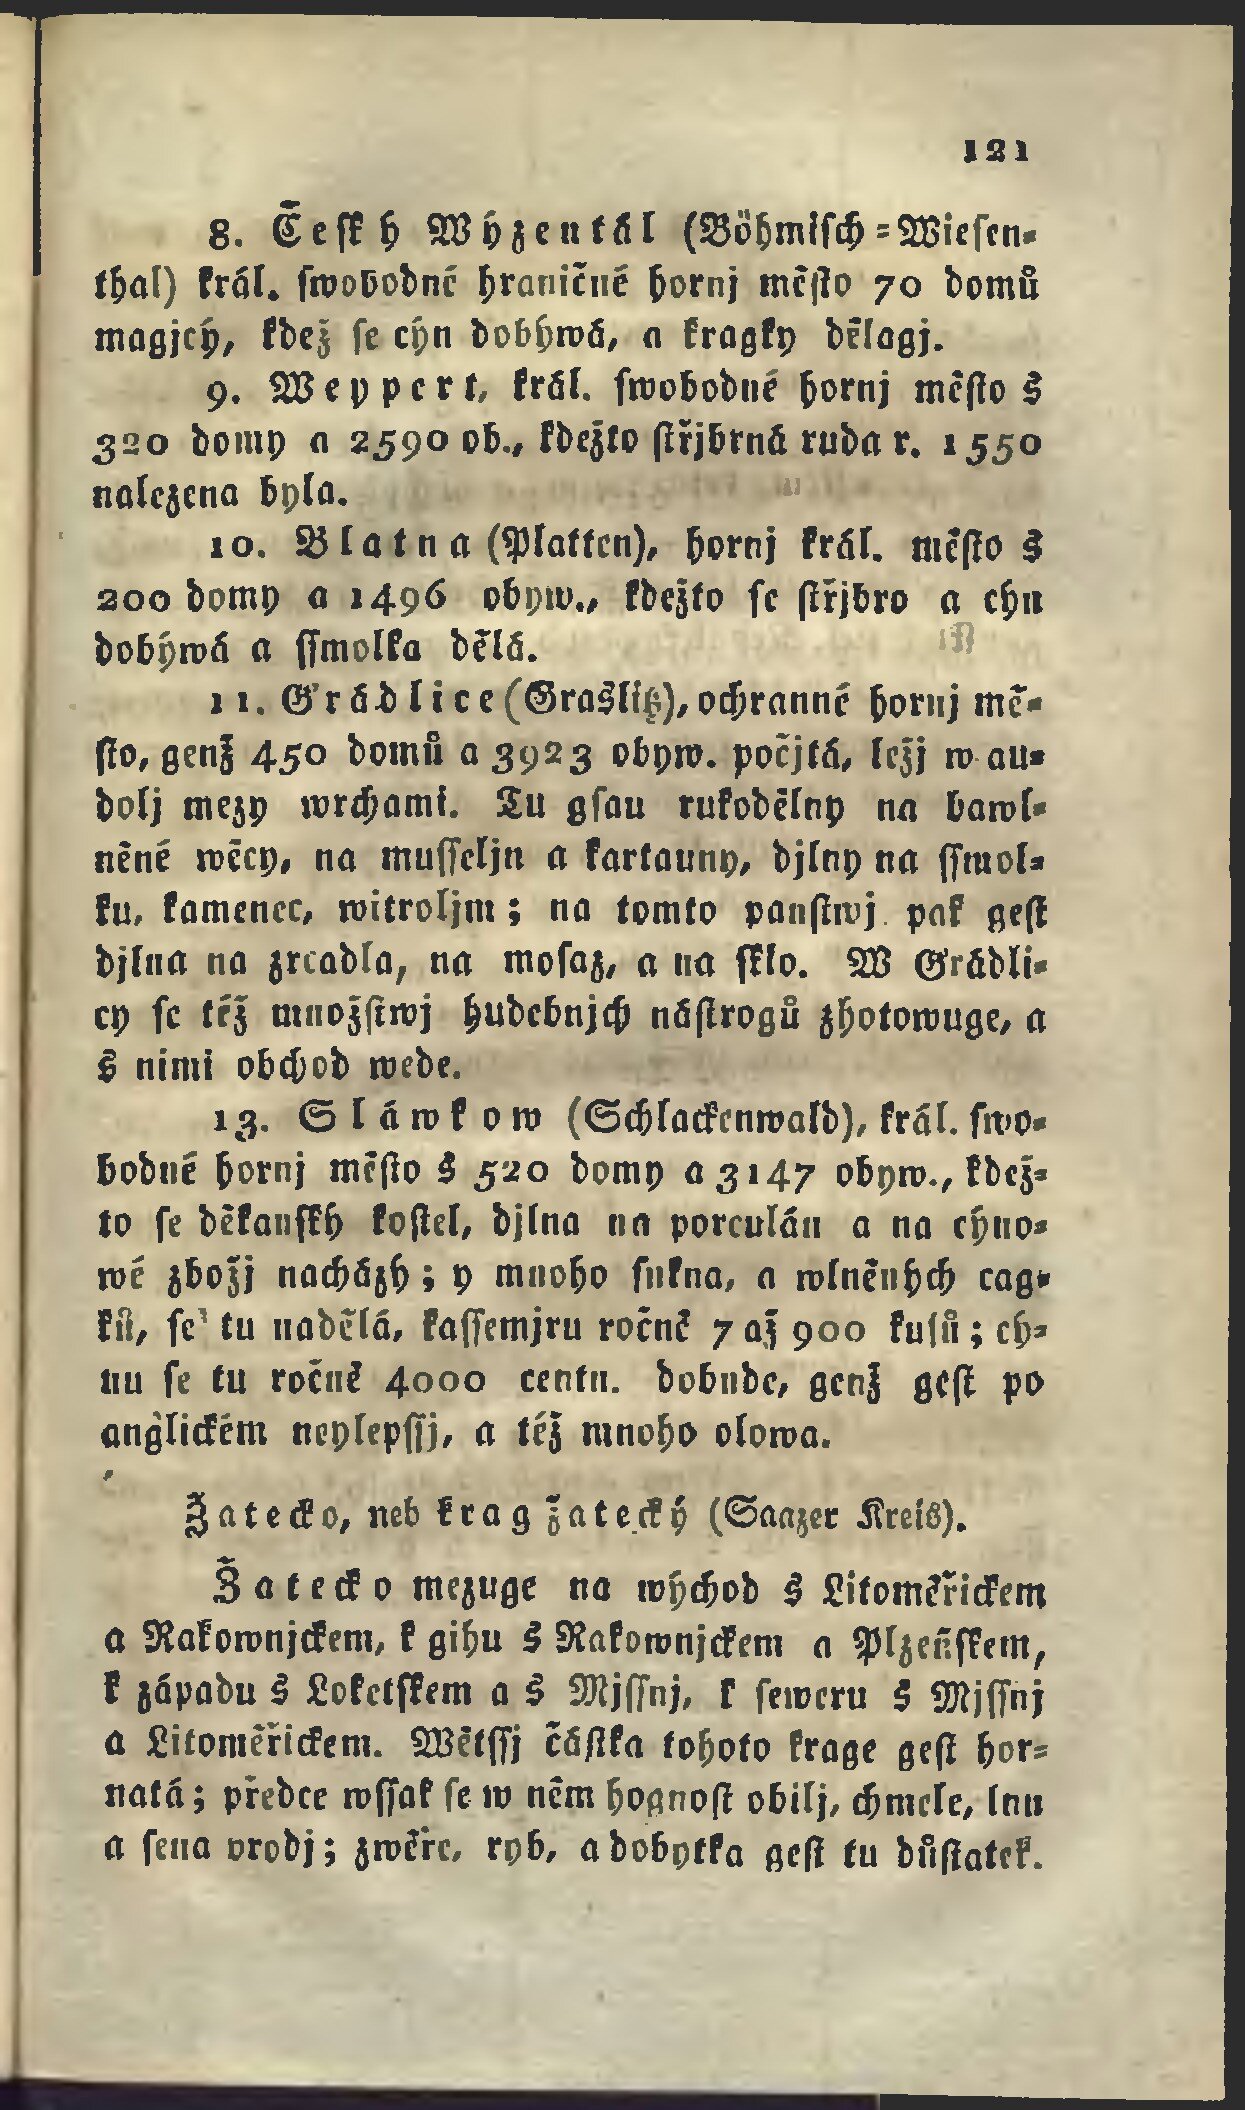 121
8. Český Wýzentál (Böhmisch=Wiesen=
thal) král. swobodné hraničné hornj město 70 domů
magjcý, kdež se cýn dobýwá, a kragky dělagj.
9. Weyppert, král. swobodné hornj město s
320 domy a 2590 ob., kdežto střjbrná ruda r. 1550
nalezena byla.
10. Blatna (Platten), hornj král. město s
200 domy a 1496 obyw., kdežto se střjbro a cýn
dobýwá a ssmolka dělá.
11. Grádlice (Grasliz), ochranné hornj mě=
sto, genž 450 domů a 3923 obyw. počjtá, ležj w au=
dolj mezy wrchami. Tu gsau rukodělny na bawl=
něné wěcy, na musseljn a kartauny, djlny na ssmol=
ku, kamenec, witroljm; na tomto panstwj pak gest
djlna na zrcadla, na mosaz, a na sklo. W Grádli=
cy se též množstwj hudebnjch nástrogů zhotowuge, a
s nimi obchod wede.
13. Sláwkow (Schlackenwald), král. swo=
bodné hornj město s 520 domy a 3147 obyw., kdež=
to se děkanský kostel, djlna na porculán a na cýno=
wé zbožj nacházý; y mnoho sukna, a wlněných cag=
ků, se tu nadělá, kassemjru ročně 7 až 900 kusů; cý=
nu se tu ročně 4000 centn. dobude, genž gest po
anglickém neylepssj, a též mnoho olowa.
Žatecko, neb krag žatecký (Saazer Kreis).
Žatecko mezuge na wýchod s Litoměřickem
a Rakownjckem, k gihu s Rakownjckem a Plzeňskem,
k západu s Loketskem a s Mjssnj, k seweru s Mjssnj
a Litoměřickem. Wětssj částka tohoto krage gest hor=
natá; předce wssak se w něm hognost obilj, chmele, lnu
a sena vrodj; zwěře, ryb, a dobytka gest tu důstatek.